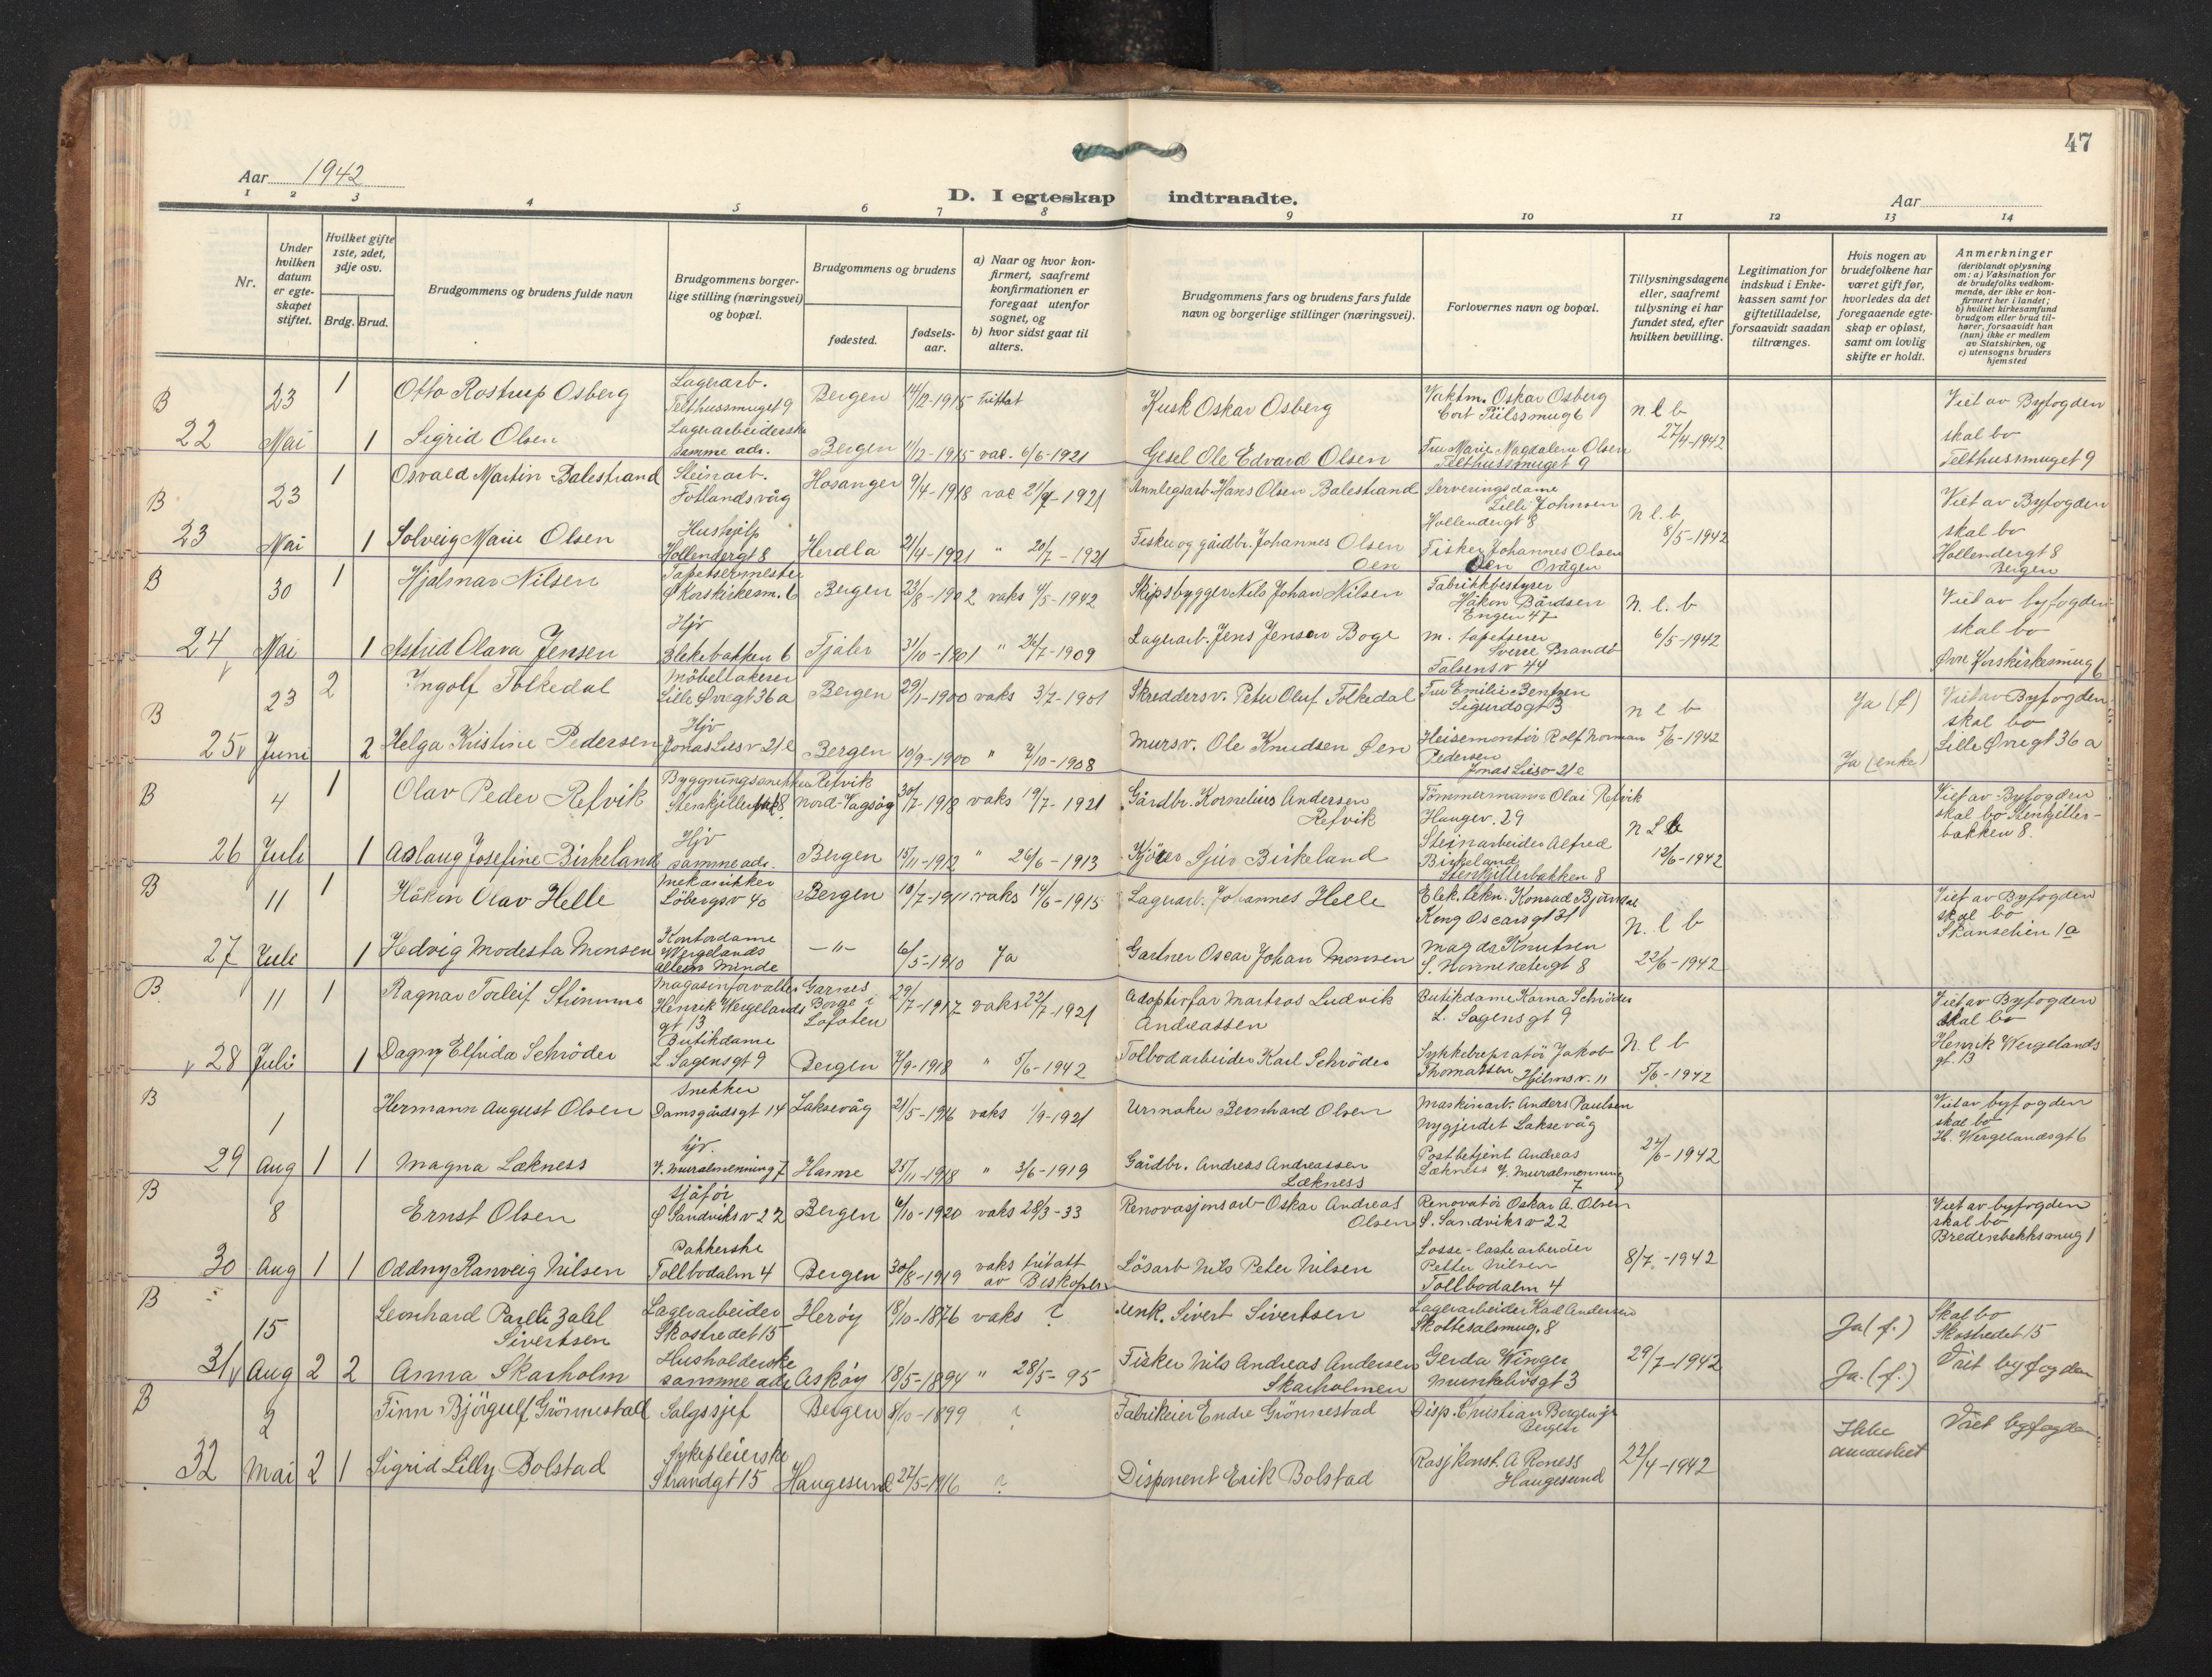 47
Aar 1942
D. I egteskap indtraadte.
Aar
1 2 3 4 5 6 7 8 9 10 11 12 13 14
Nr.
Under hvilken datum er egte- skapet stiftet.
Hvilket gifte 1ste, 2det, 3dje osv.
Brdg. Brud.
Brudgommens og brudens fulde navn
Brudgommens borger- lige stilling (næringsvei) og bopæl.
Brudgommens og brudens
fødested.
fødsels- aar.
a) Naar og hvor kon- firmert, saafremt konfirmationen er foregaat utenfor sognet, og
b) hvor sidst gaat til alters.
Brudgommens fars og brudens fars fulde navn og borgerlige stillinger (næringsvei).
Forlovernes navn og bopæl.
Tillysningsdagene eller, saafremt tillysning ei har fundet sted, efter hvilken bevilling.
Legitimation for indskud i Enke- kassen samt for giftetilladelse, forsaavidt saadan tiltrænges.
Hvis nogen av brudefolkene har været gift før, hvorledes da det foregaaende egte- skap er opløst, samt om lovlig skifte er holdt.
Anmerkninger
(deriblandt oplysning om: a) Vaksination for de brudefolks vedkom- mende, der ikke er kon- firmert her i landet; b) hvilket kirkesamfund brudgom eller brud til- hører, forsaavidt han (hun) ikke er medlem av Statskirken, og c) utensogns bruders hjemsted
B 23 1 Otto Rostrup Osberg Lagerarb. Telthussmuget 9 Bergen 14/12-1915 Kusk Oskar Osberg Vaktm. Oskar Osberg Cort Piilssmug 6 n l b Viet av Byfogden
22 Mai 1 Sigrid Olsen Lagerarbeiderske samme adr. Bergen 11/12-1915 vac. 6/6-1921 Gesel Ole Edvard Olsen Fru Marie Magdalene Olsen Telthussmuget 9 27/4-1942 skal bo Telthussmuget 9
B 23 1 Osvald Martin Balestrand Steinarb. Fotlandsvåg Hosanger 9/4-1918 vac 21/9-1921 Annlegsarb. Hans Olsen Balestrand Serveringsdame Lilli Johnsen Hollendergt 8 n l. b Viet av Byfogden
23 Mai 1 Solveig Marie Olsen Hushjelp Hollendergt 8 Herdla 21/4-1921 " 20/7-1921 Fisker og gårdbr. Johannes Olsen Oen Fisker Johannes Olsen Oen Ovågen 8/5-1942 skal bo Hollendergt 8 Bergen
B 30 1 Hjalmar Nilsen Tapetsermester Ø Korskirkesm. 6 Bergen 23/8-1902 vaks 4/5-1942 Skipsbygger Nils Johan Nilsen Fabrikkbestyrer Håkon Bårdsen Engen 47 n. l. b Viet av byfogden
24 Mai 1 Astrid Olava Jensen Hjv Blekebakken 6 Fjaler 31/10-1901 " 26/7-1909 Lagerarb. Jens Jensen Boge m. tapetserer Sverre Brandt Falsensv 44 6/5-1942 skal bo Øvre Korskirkesmug 6
B 23 2 Ingolf Tolkedal Möbellakerer Lille Øvregt 36 a Bergen 29/1-1900 vaks 3/7-1901 Skredderv. Peter Oluf Tolkedal Fru Emilie Bentzen Sigurdsgt 3 n l b Ja (f) Viet av Byfogden
25 Juni 2 Helga Kristine Pedersen Hjv Jonas Liesv 21 e Bergen 10/9-1900 " 7/10-1908 Mursv. Ole Knudsen Øen Heisemontör Rolf Norman Pedersen Jonas Liesv 21 e 5/6-1942 Ja (enke) skal bo Lille Øvregt 36 a
B 4 1 Olav Peder Refvik Stenkjellerbak 8 Refvik Nord-Vågsøy 30/7-1918 vaks 19/7-1921 Gårdbr. Kornelius Andersen Refvik Tömmermann Olai Refvik Haugev. 29 n l b Viet av Byfogden
26 Juli 1 Aslaug Josefine Birkeland Hjv samme adr. Bergen 15/11-1912 " 26/6-1913 Kjörer Sjur Birkeland Steinarbeider Alfred Birkeland Stenkjellerbakken 8 12/6-1942 skal bo Stenkjeller- bakken 8.
B 11 1 Håkon Olav Helle Mekanikker Löbergsv 40 Bergen 10/7-1911 vaks 14/6-1915 Lagerarb. Johannes Helle Elek. tekn. Konrad Björndal Kong Oscarsgt 31 n. l b Viet av Byfogden
27 Juli 1 Hedvig Modesta Monsen Kontordame Wergelands alleen Minde — " — 6/5-1910 Ja Gartner Oscar Johan Monsen Magda Knutsen S. Nonneseter gt 8 22/6-1942 skal bo Skanselien 1a
B 11 1 Ragnar Torleif Strömme Magasinforvalter Henrik Wergelands gt 13 Garnes Borge i Lofoten 29/7-1917 vaks 22/7-1921 Adoptivfar Marteas Ludvik Andreassen Butikdame Karna Schröder L. Sagensgt 9 n. l b Viet av Byfogden
28 Juli 1 Dagny Elfrida Schröder Butikdame L Sagensgt 9 Bergen 7/9-1918 " 5/6-1942 Tolbodarbeider Karl Schröder Sykkelrepratör Jakob Thomassen Hjelmsv. 11 5/6-1942 skal bo Henrik Wergelands gt. 13
B 1 Hermann August Olsen Snekker Damsgårdsgt 14 Laksevåg 21/5-1916 vaks 1/9-1921 Urmaker Bernhard Olsen Maskinarb. Anders Paulsen Nygjerdet Laksevåg Viet av byfogden
29 Aug 1 1 Magna Lekness hjv. V. Muralmenning 7 Hamre 25/11-1918 " 3/6-1919 Gårdbr. Andreas Andreassen Lekness Postbetjent Andreas Lekness V. Muralmenning 7 24/6-1942 skal bo H. Wergelandsgt 6
B 8 Ernst Olsen Sjåför Ø Sandviksv 22 Bergen 6/10-1920 vaks 28/3-33 Renovasjonsarb Oskar Andreas Olsen Renovatör Oskar A. Olsen S. Sandviksv 22 Viet av byfogden
30 Aug 1 1 Oddny Ranveig Nilsen Pakkerske Tollbodalm 4 Bergen 30/8-1919 vaks tilatt av Biskopen Lösarb Nils Peter Nilsen Losse- laste arbeider Petter Nilsen Tollbodalm 4 8/7-1942 skal bo Bredenbekksmug 1
B 15 Leonhard Sivertsen Lagerarbeider Skostredet 15 Herøy 18/10-1876 vaks ? Sivert Sivertsen Lagerarbeider Karl Andersen Skottesalsmug. 8 Ja (f.) Skal bo Skostredet 15
31 Aug 2 2 Anna Skarholm Husholderske samme adr Askøy 18/5-1894 " 28/5-95 Fisker Nils Andreas Andersen Skarholmen Gerda Winger Munkelivsgt 3 29/7-1942 Ja. (f.) Viet byfogden
B 2 Finn Björgulf Grönnestad Salgssjef Bergen 8/10-1899 ? Fabrikeier Endre Grönnestad Disp. Christian Bergen Viet byfogden
32 Mai 2 1 Sigrid Lilly Bolstad Sykepleierske Strandgt 15 Haugesund 27/5-1916 ? Disponent Erik Bolstad A Roness Haugesund 22/4-1942 Ikke anmerket